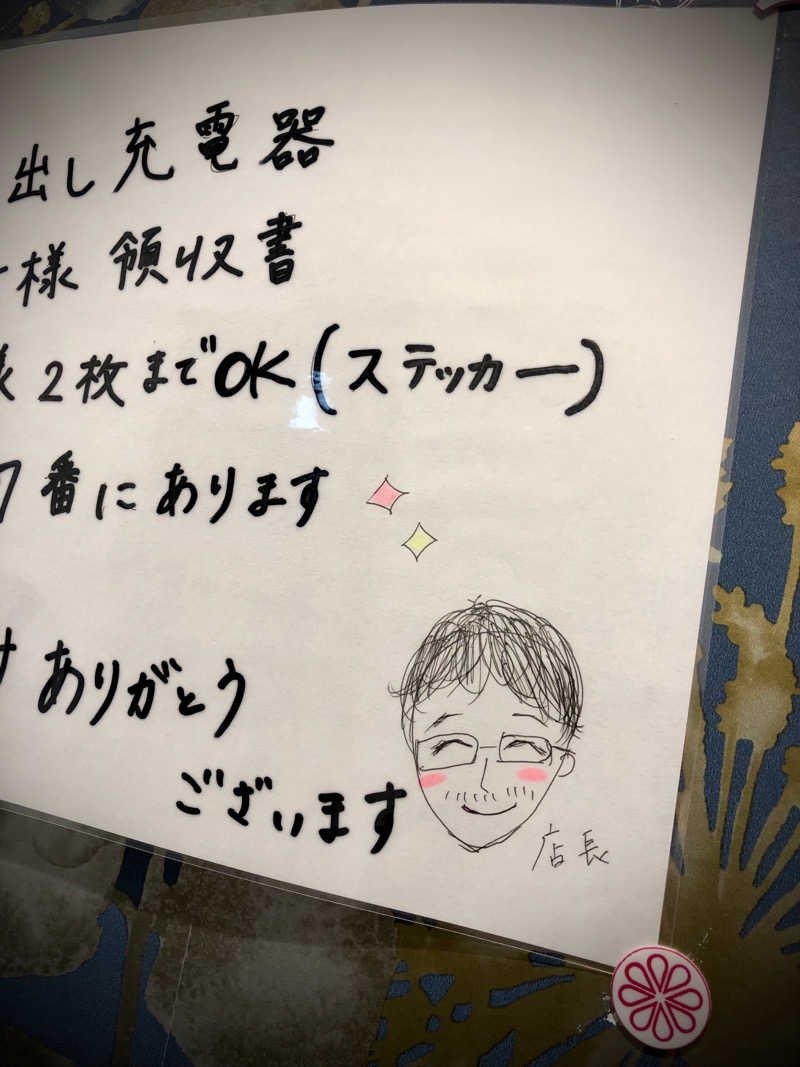 出し充電器
様 領収書
2枚までOK(ステッカー)
7番にあります
ありがとう
ございます
店長